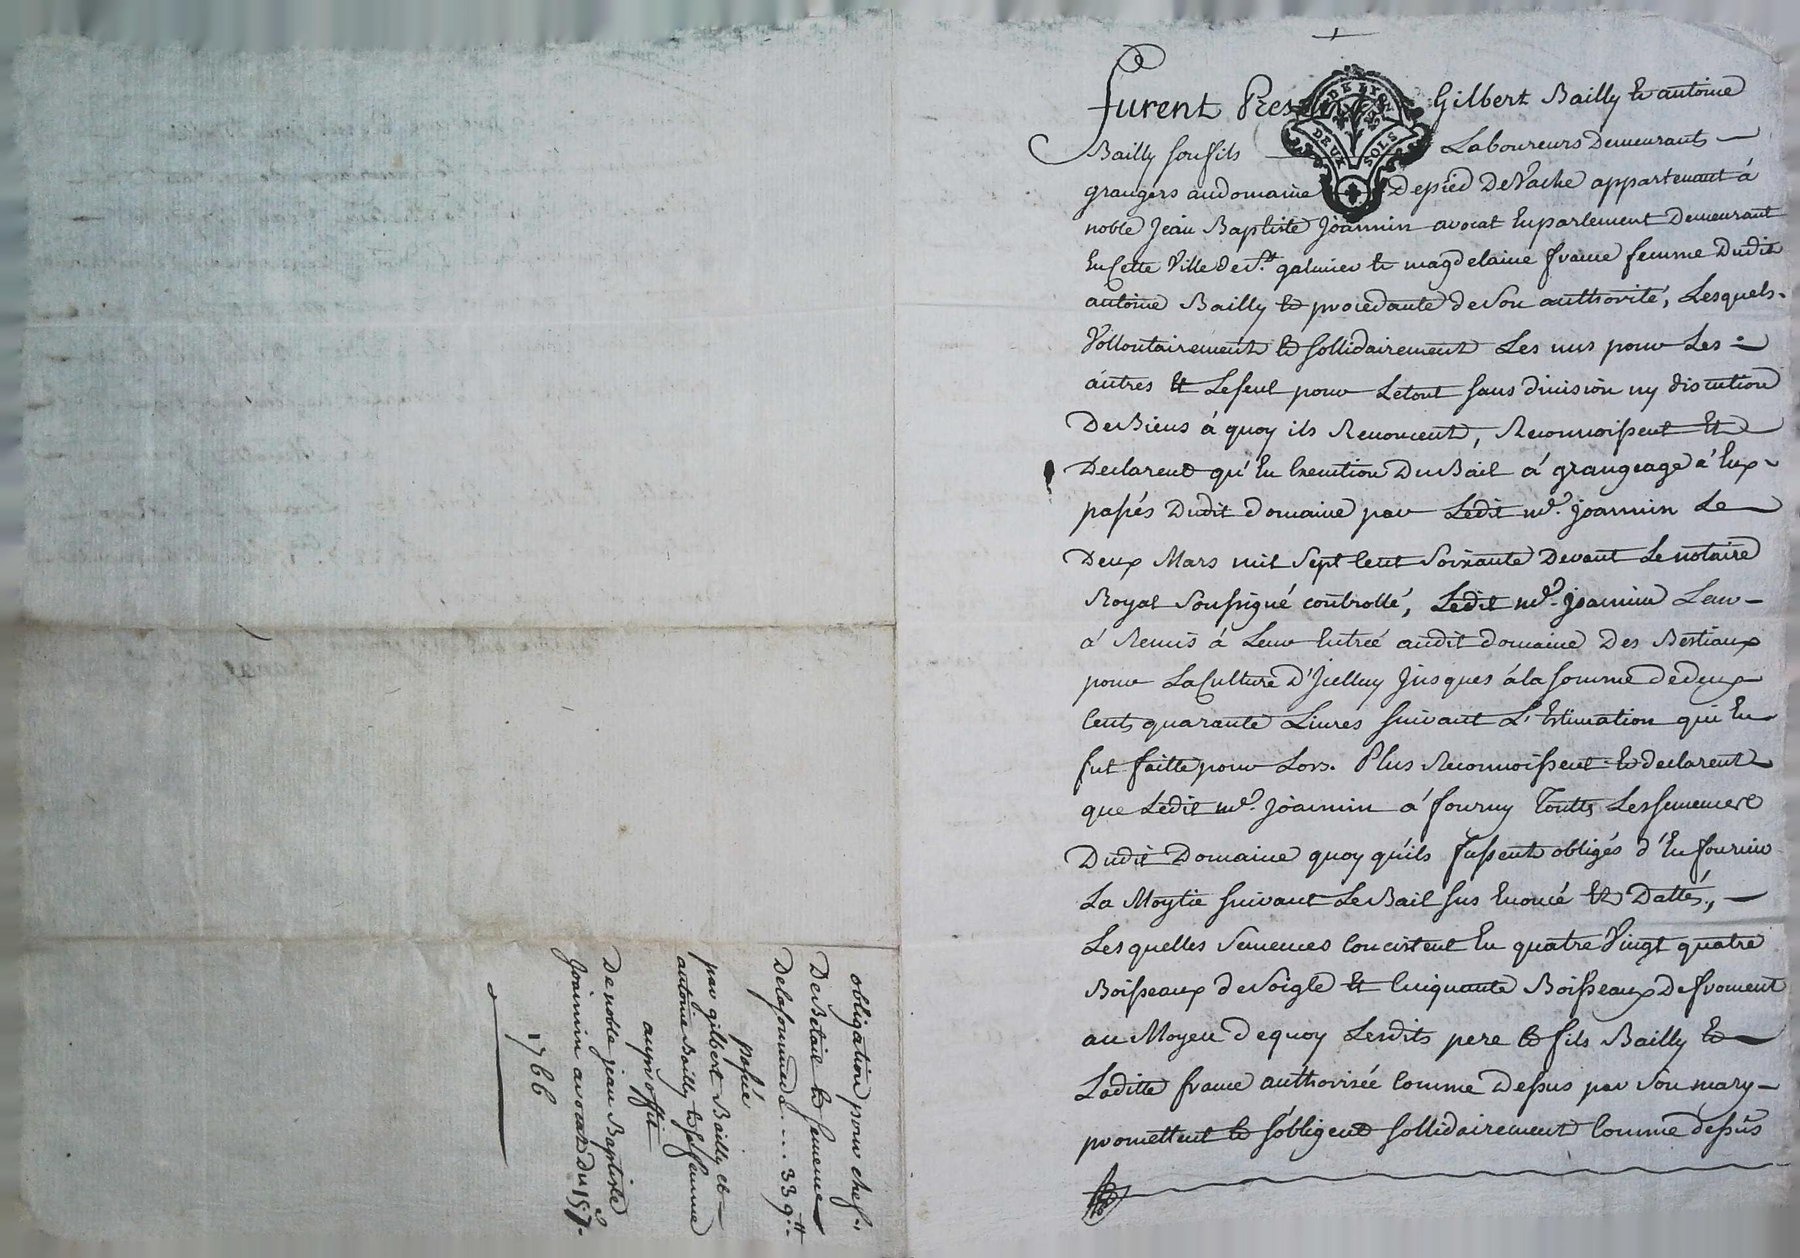 furent Presents Gilbert Bailly et antoine
DE LYON
DEUX SOLS
Bailly son fils Laboureurs Demeurants
grangers au domaine De pied De Vache appartenant á
noble Jean Baptiste Joannin avocat En parlement Demeurant
En Cette Ville de St. galmier et magdelaine france femme Dudit
antoine Bailly et procedante de Son authorité, Lesquels
Vollontairement et sollidairement Les uns pour Les
autres et Le seul pour Le tout sans division ny discution
De Biens á quoy ils Renoncent, Reconnoissent Et
Declarent qu'En Execution Du Bail á grangeage á Eux
passés Dudit domaine par Ledit me. Joannin Le
Deux Mars mil Sept Cent Soixante Devant Le notaire
Royal Soussigné controllé, Ledit me. Joannin Leur
á Remis á Leur Entreé audit domaine Des Bestiaux
pour La Culture D'Icelluy Jusques á la somme de deux
Cents quarante Livres suivant L'Estimation qui En
fut faitte pour Lors. Plus Reconnoissent et declarent
que Ledit me. Joannin á fourny Toutes Les semences
Dudit Domaine quoy qu'ils fussent obligés d'En fournir
La Moytié suivant Le Bail sus Enoncé Et Datté,
Lesquelles Semences Concistent En quatre Vingt quatre
Boisseaux de Soigle Et Cinquante Boisseaux De froment
au Moyen de quoy Lesdits pere et fils Bailly et
Laditte france authorisée Comme Dessus par Son mary
promettent et s'obligent sollidairement Comme dessus
obligation pour chef
De Betail et semence
De la somme de ... 339 tt
passée
par gilbert Bailly et
antoine Bailly et sa femme
au proffit
De noble jean Baptiste
Joannin avocat du 15 7
1766